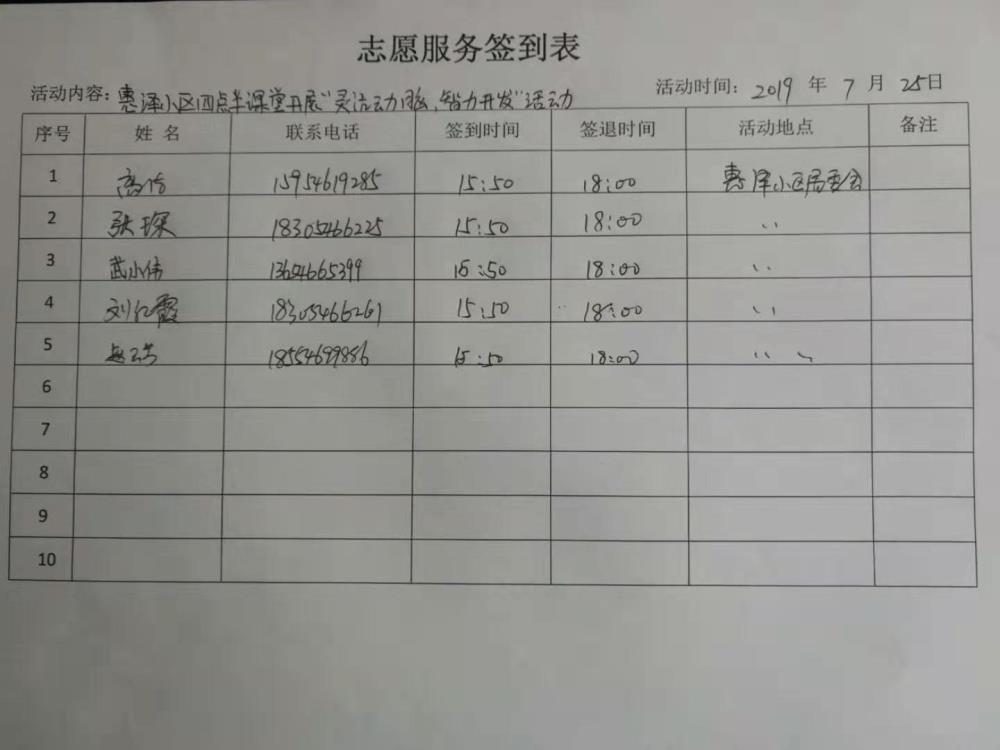 志愿服务签到表
活动内容：惠泽小区四点半课堂开展“灵活动脑、智力开发”活动 活动时间：2019 年 7 月 25日
序号 姓 名 联系电话 签到时间 签退时间 活动地点 备注
1 高倩 15954619285 15:50 18:00 惠泽小区居委会
2 张琛 18305466225 15:50 18:00 〃
3 武小伟 13654665399 15:50 18:00 〃
4 刘红霞 18305466261 15:50 18:00 〃
5 18554699886 15:50 18:00 〃
6
7
8
9
10